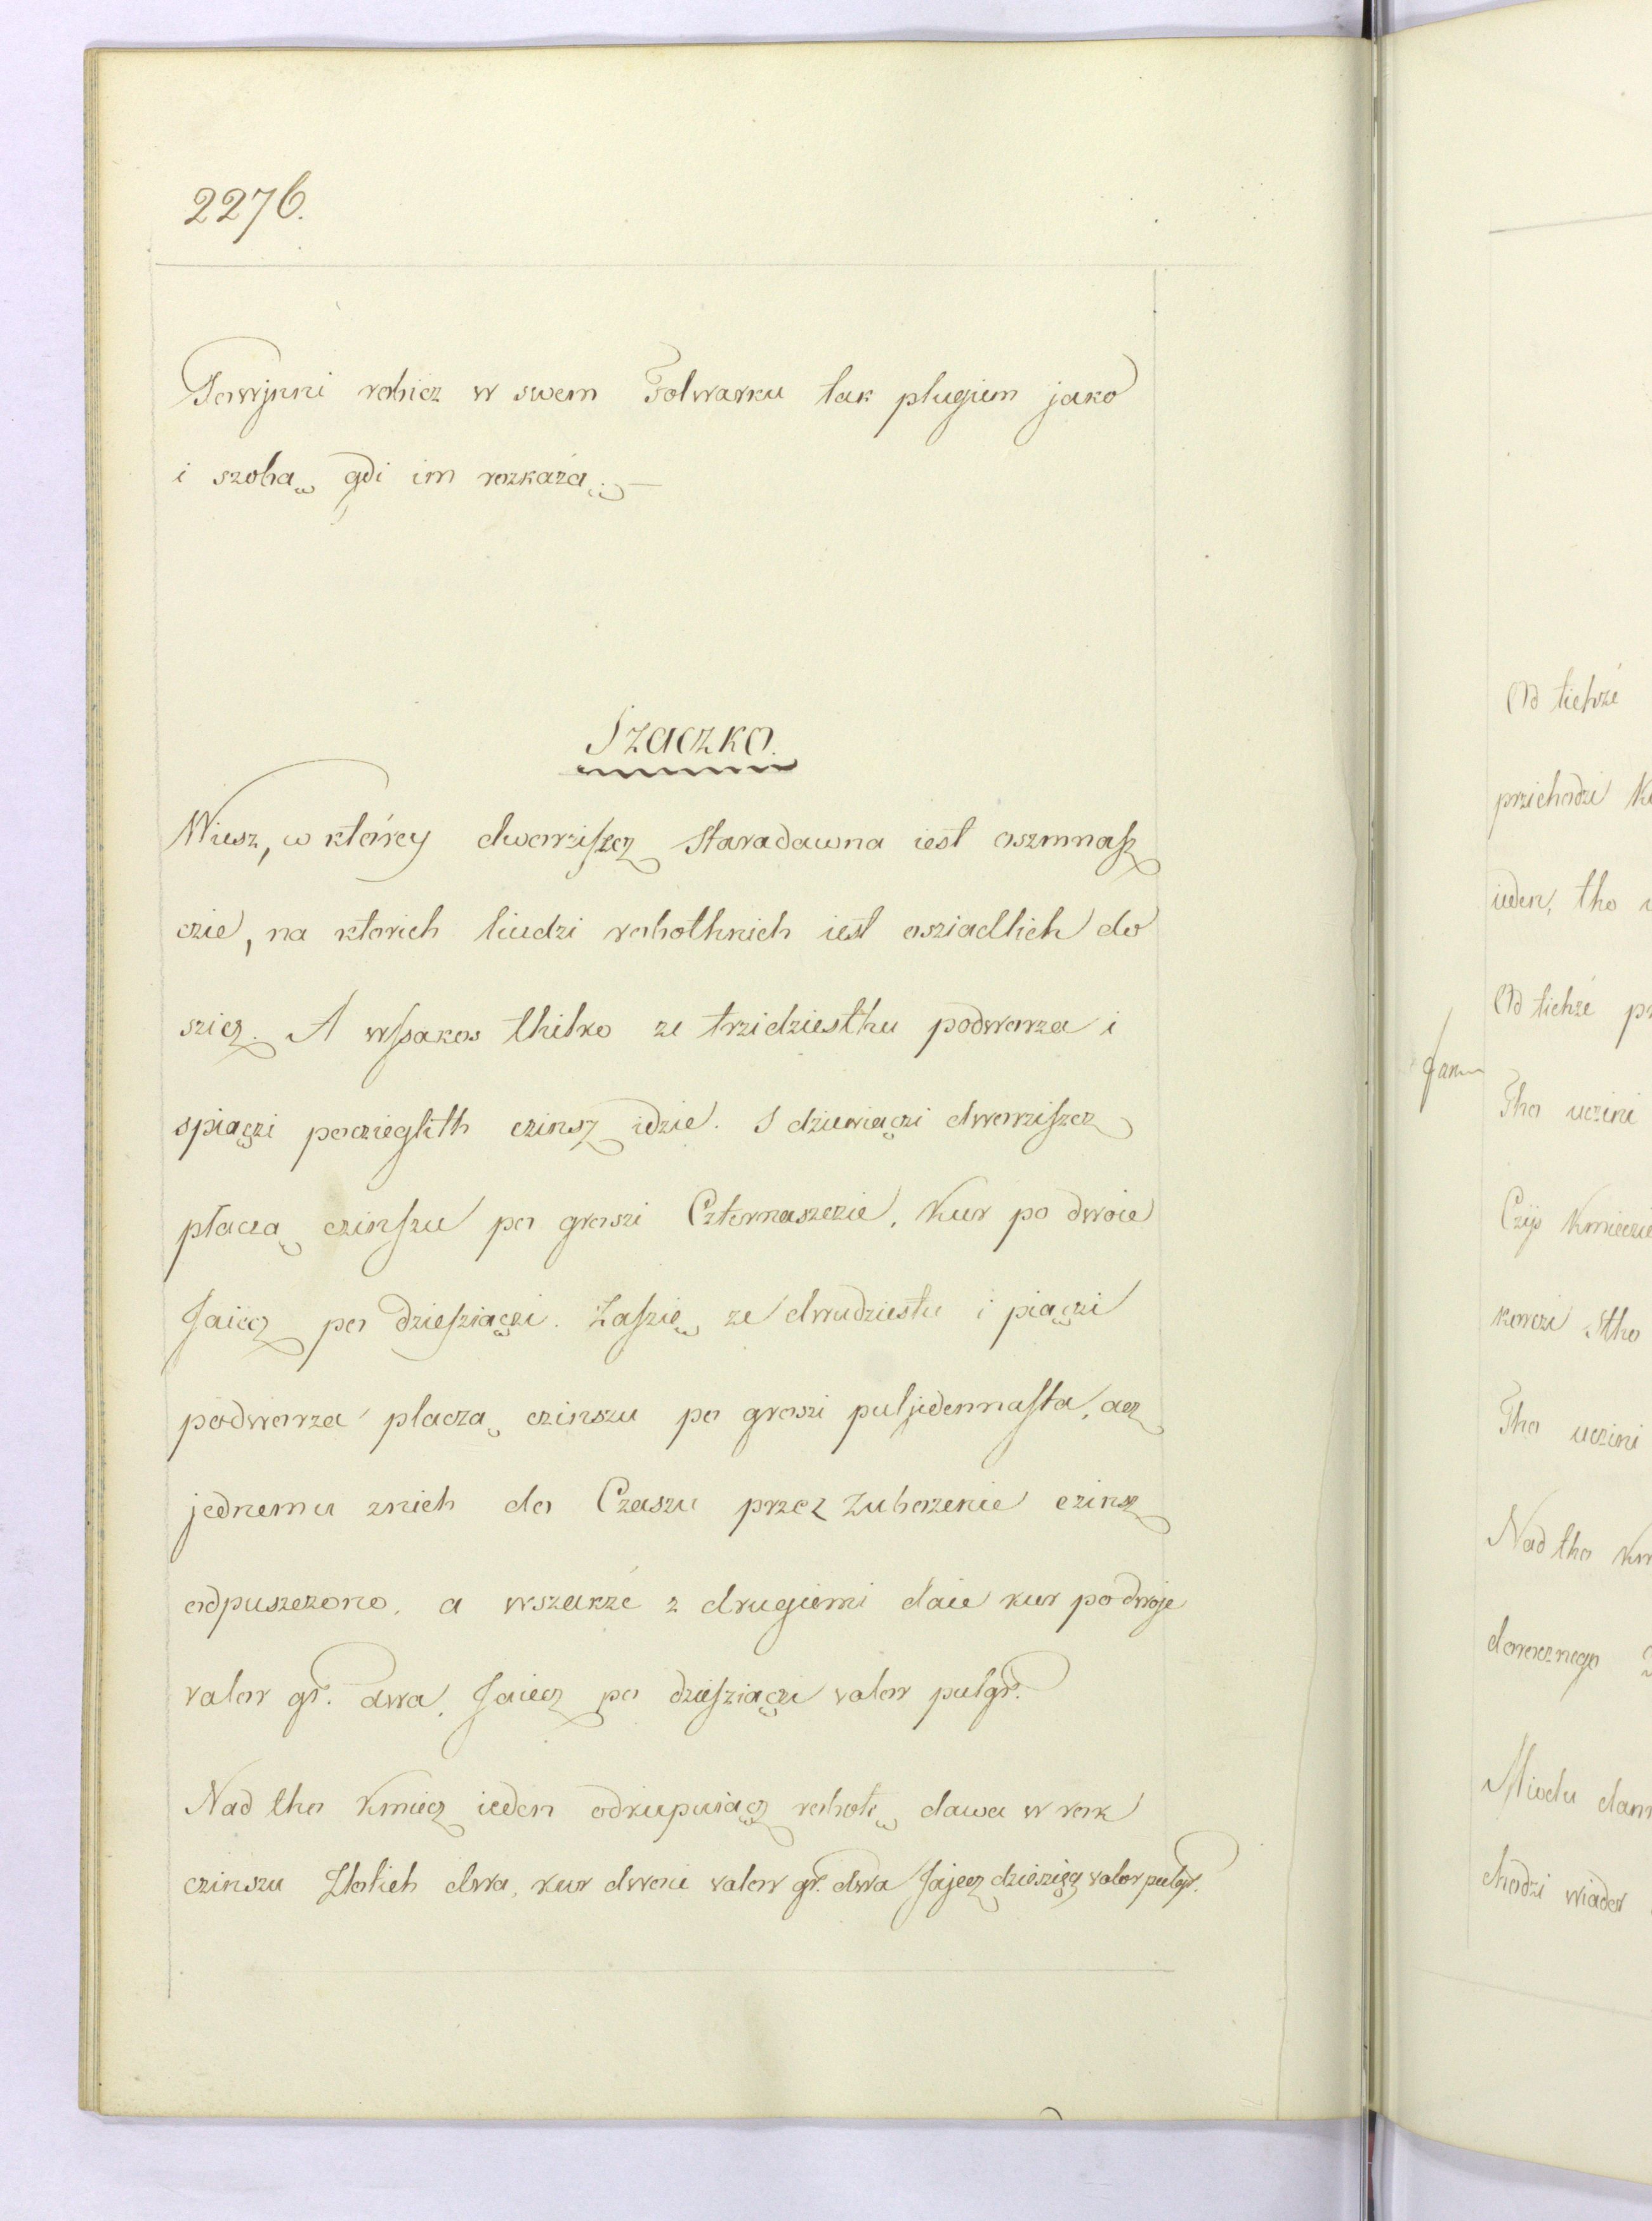 2276.
Powjnni robicz w swem Folwarku tak plugiem jako
i szobą gdi im rozkażą.—
Szaczko.
Wiesz, w któréy dworziszcz staradawna iest oszmnasz
czie, na ktorich liudzi robothnich iest osziadlich do
szicz. A wszakos thilko ze trzidziesthu podworza i
spiączi poczieglith czinsz idzie. S dziewiączi dworziszcz
płaczą czinszu po groszi Czternaszczie, Kur po dwoie
Jaiecz po dziesziączi. Zaszię ze dwudziestu i piączi
podworza placzą czinszu po groszi puljedennasta, acz
jednemu znich do Czaszu przez zubozenie czinsz
odpuszczono, a wszakże z drugiemi daie kur podwoje
valor gr. dwa, Jaiecz po dziesziączi valor pulgr.
Nad tho Kmiecz ieden odkupuiącz robotę dawa w rok
czinszu Złotich dwa, kur dwoie valor gr. dwa Jajecz dziesięcz valor pulgr.
Od tichże
przichodzi
ieden, tho
Od tichże
Tho uczini
Czij Kmieczie
korczi stho
Tho uczini
Nad tho
dworcznego
Miodu
chodzi wiader